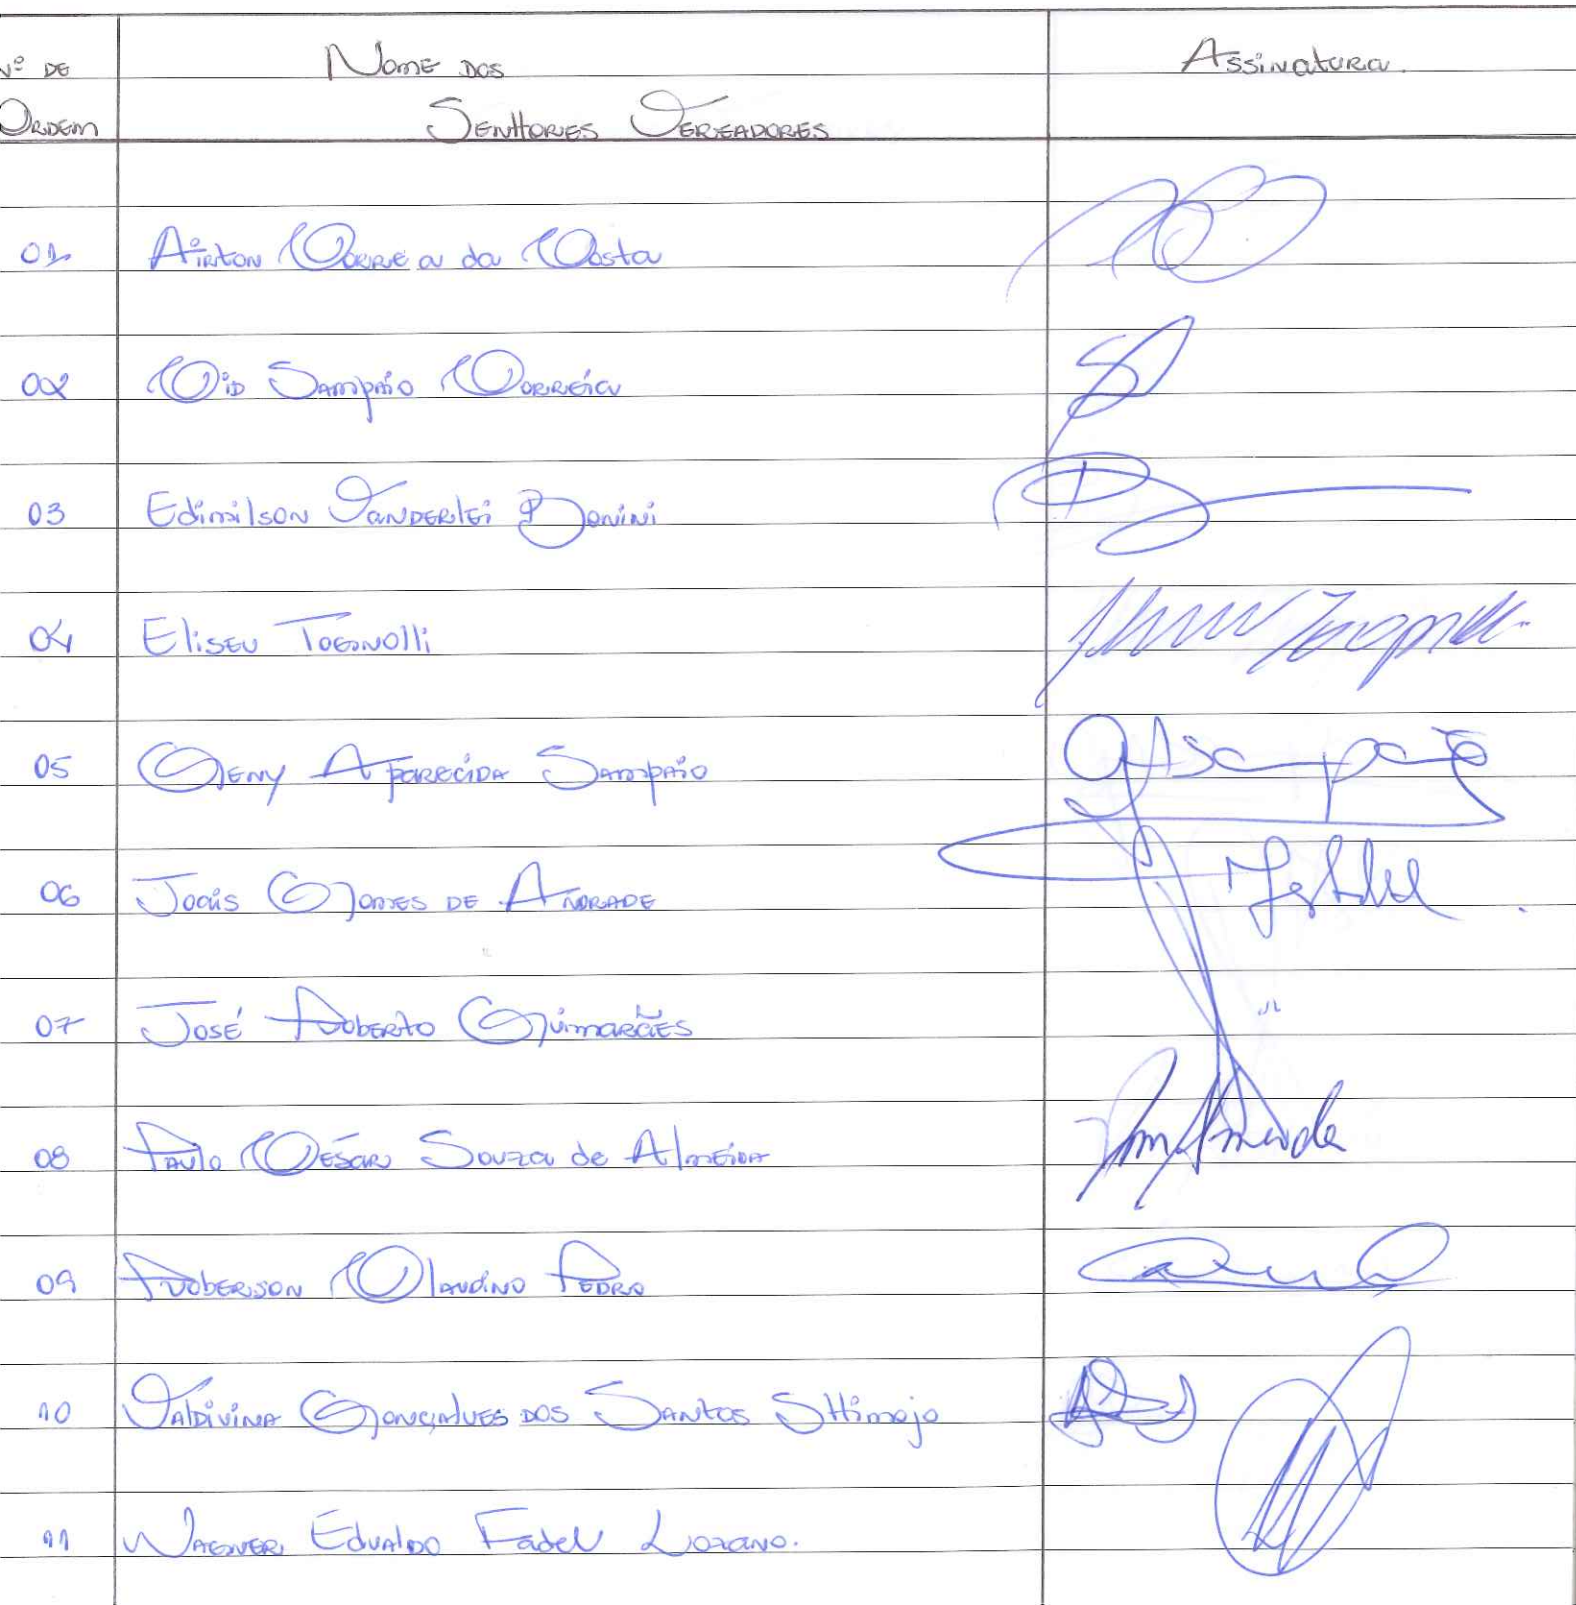 Nº DE Nome dos Assinatura.
Ordem Senhores Vereadores
01 Airton Correa da Costa
02 Cid Sampaio Correia
03 Edimilson Vanderlei Bonini
04 Eliseu Tognolli
05 Geny Aparecida Sampaio
06 Joaís Gomes de Andrade
07 José Roberto Guimarães
08 Paulo César Souza de Almeida
09 Roberson Claudino Pedro
10 Valdivina Gonçalves dos Santos Shimojo
11 Wagner Edvaldo Fadel Lozano.